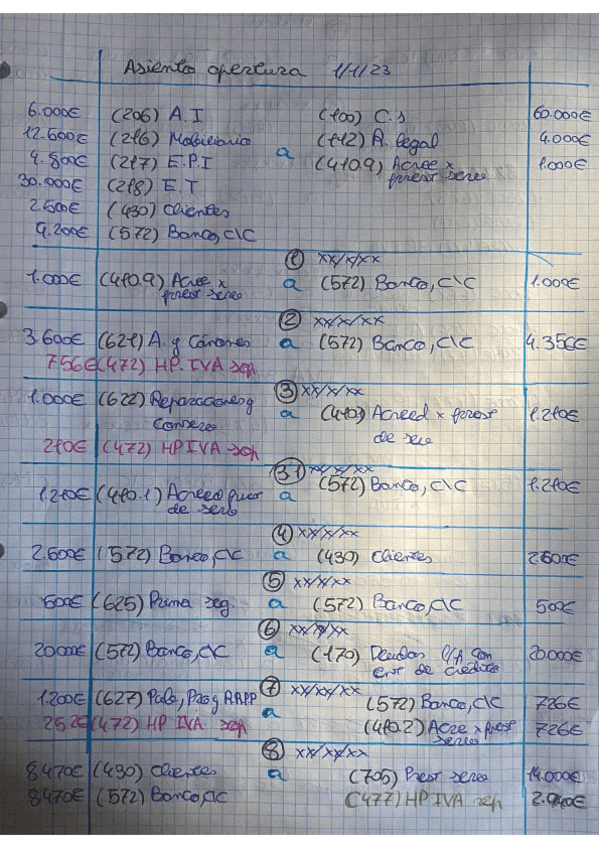 Asiento apertura 1/1/23
6.000€ (206) A.I (100) C.S 60.000€
12.600€ (216) Mobiliario a (112) R. legal 4.000€
4.800€ (217) E.P.I (410.9) Acree x 1.000€
prest serv
30.000€ (218) E.T
2.500€ (430) Clientes
9.200€ (572) Banco, c\C
① xx/x/xx
1.000€ (410.9) Acree x a (572) Banco, C\C 1.000€
prest serv
② xx/x/xx
3.600€ (621) A. y Cánones a (572) Banco, C\C 4.356€
756€ (472) HP. IVA sop
③ xx/x/xx
1.000€ (622) Reparaciones y a (410) Acreed x prest 1.210€
Conserv de serv
210€ (472) HP IVA sop
③① xx/xx/xx
1.210€ (410.1) Acreed por a (572) Banco, C\C 1.210€
de serv
④ xx/xx/xx
2.600€ (572) Banco, c\C a (430) Clientes 2600€
⑤ xx/xx/xx
500€ (625) Prima seg. a (572) Banco, C\C 500€
⑥ xx/xx/xx
20.000€ (572) Banco, c\C a (170) Deudas l/p con 20.000€
ent de crédito
⑦ xx/xx/xx
1.200€ (627) Publ, Prog RRPP a (572) Banco, c\C 726€
252€ (472) HP IVA sop (410.2) Acre x prest 726€
serv
⑧ xx/xx/xx
8470€ (430) Clientes a (705) Prest serv 14.000€
8470€ (572) Banco, c\C (477) HP IVA rep 2.940€